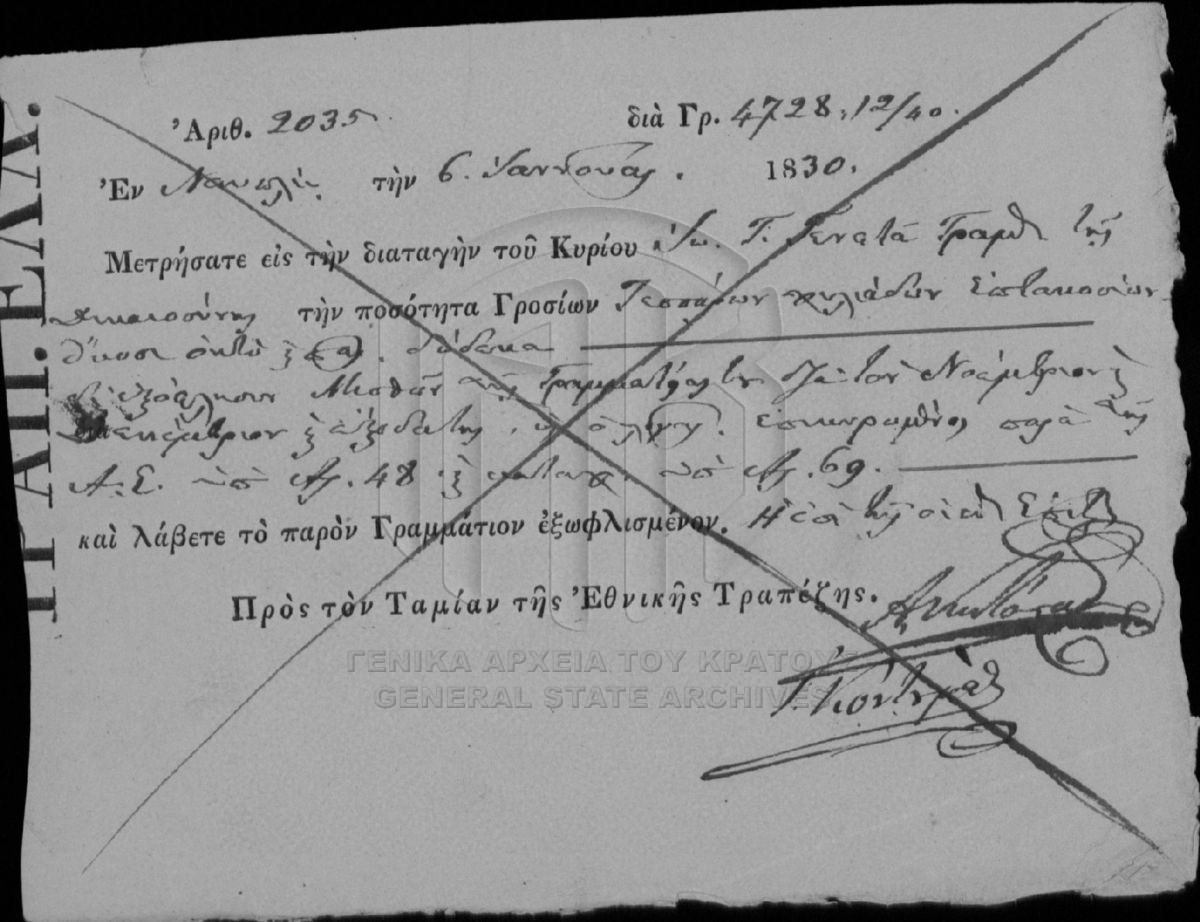 ΤΡΑΠ. ΕΛΛ.
Ἀριθ. 2035
διὰ Γρ. 4728,12/40.
Ἐν Ναυπλίῳ τὴν 6. Ἰαννουαρ. 1830.
Μετρήσατε εἰς τὴν διαταγὴν τοῦ Κυρίου Ἰω. Γ. Γενατᾶ Γραμμ τῆς
Δικαιοσύνης τὴν ποσότητα Γροσίων Τεσσάρων χιλιάδων ἑπτακοσίων
εἴκοσι ὀκτὼ δώδεκα
Μισθῶν τῆς Γραμματείας διὰ τὸν Νοέμβριον
Δεκέμβριον παρὰ τῆς
Α. Ε. ὑπ Αρ. 48 ὑπ Αρ. 69.
καὶ λάβετε τὸ παρὸν Γραμμάτιον ἐξωφλισμένον. Ἡ ἐπὶ τῆς
Πρὸς τὸν Ταμίαν τῆς Ἐθνικῆς Τραπέζης.
ΓΕΝΙΚΑ ΑΡΧΕΙΑ ΤΟΥ ΚΡΑΤΟΥΣ
GENERAL STATE ARCHIVES